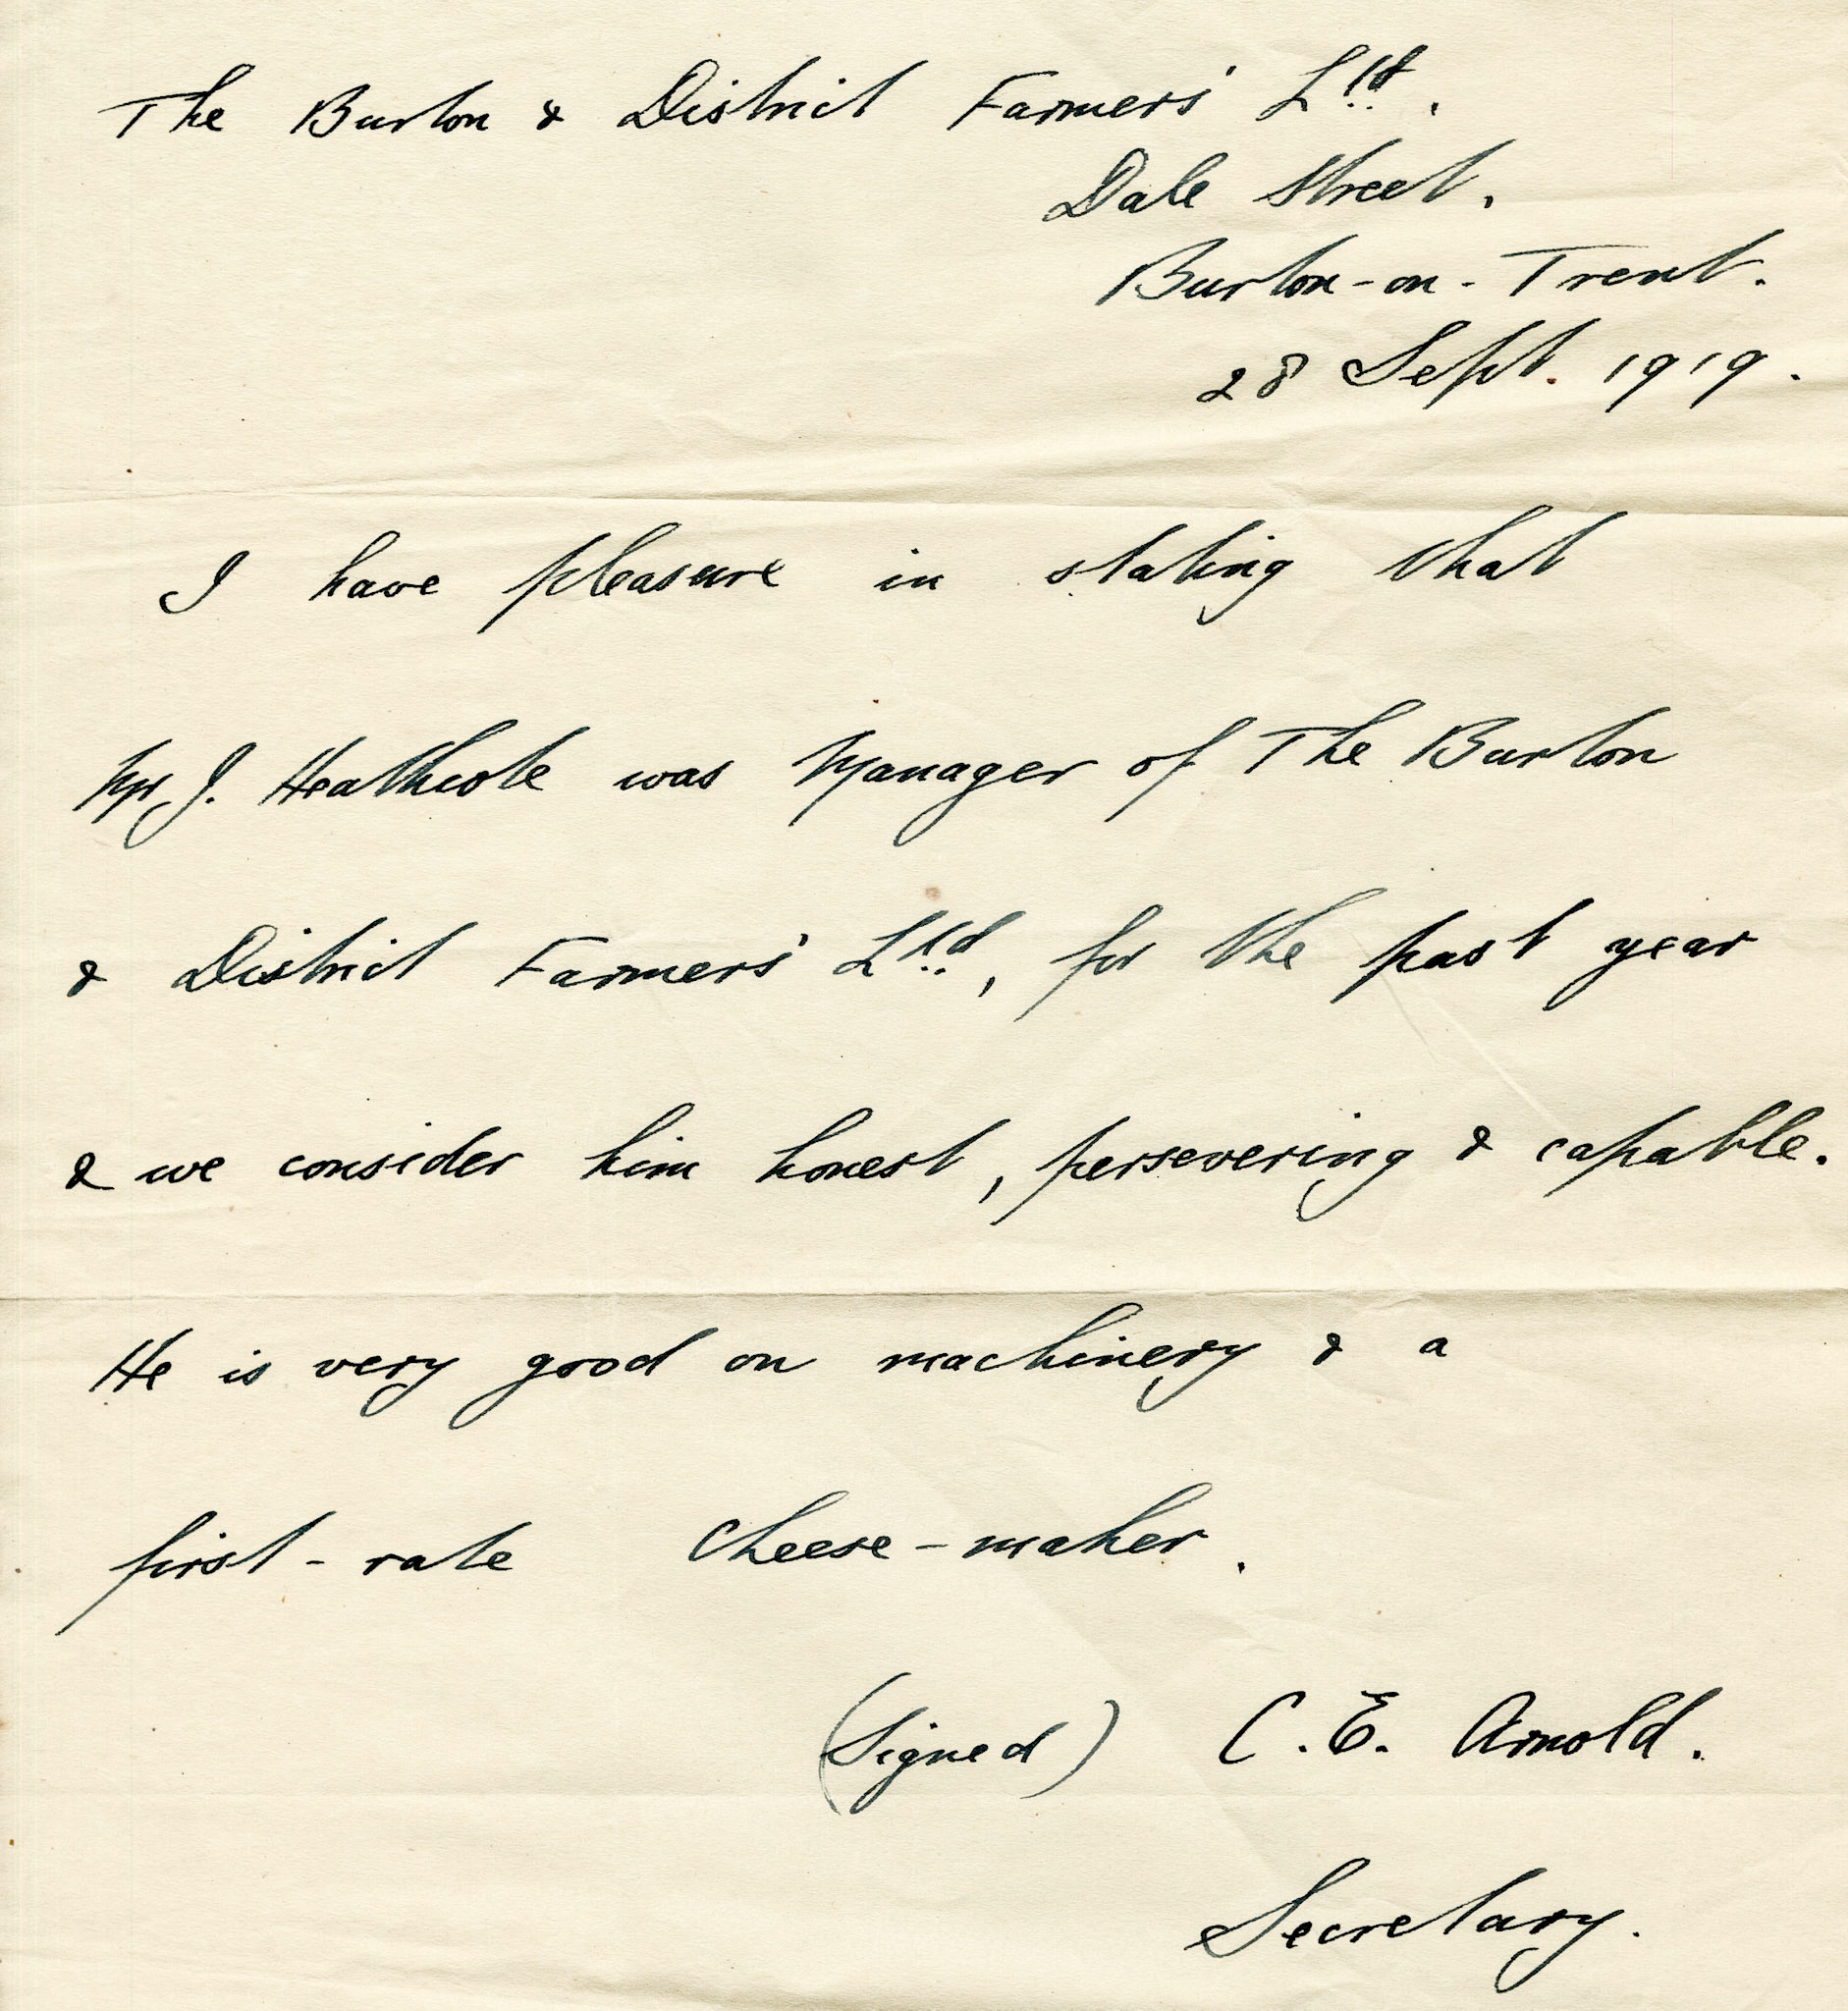 The Burton & District Farmers' Ltd.
Dale Street.
Burton-on-Trent.
28 Sept. 1919.
I have pleasure in stating that
Mr J. Heathcote was Manager of The Burton
& District Farmers' Ltd, for the past year
& we consider him honest, persevering & capable.
He is very good on machinery & a
first-rate Cheese-maker.
(Signed) C. E. Arnold.
Secretary.